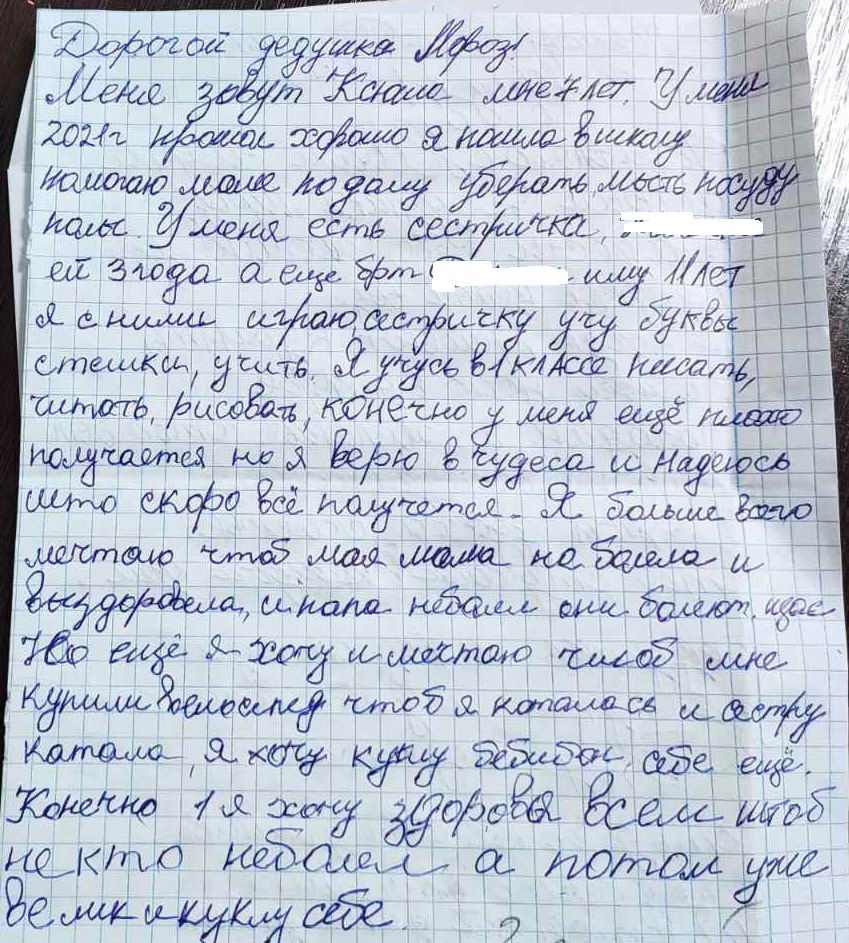 Дорогой дедушка Мороз!
Меня зовут Ксюша мне 7 лет. У меня
2021г прошол хорошо я пошла в школу
помогаю маме по дому уберать, мыть посуду
полы. У меня есть сестричка,
ей 3 года а еще брт иму 11 лет
я с ними играю, сестричку учу буквы
стешки, учить. Я учусь в 1 классе писать,
читать, рисовать, конечно у меня ещё плохо
получается но я верю в чудеса и надеюсь
што скоро всё получется. Я больше всего
мечтаю чтоб мая мама не болела и
выздоровела, и папа неболел они болеют щас
Но ещё я хочу и мечтаю чтоб мне
купили велосипед чтоб я каталась и сестру
катала, я хочу куклу бебибон себе ещё.
Конечно 1 я хочу здоровья всем штоб
не кто неболел а потом уже
велик и куклу себе.